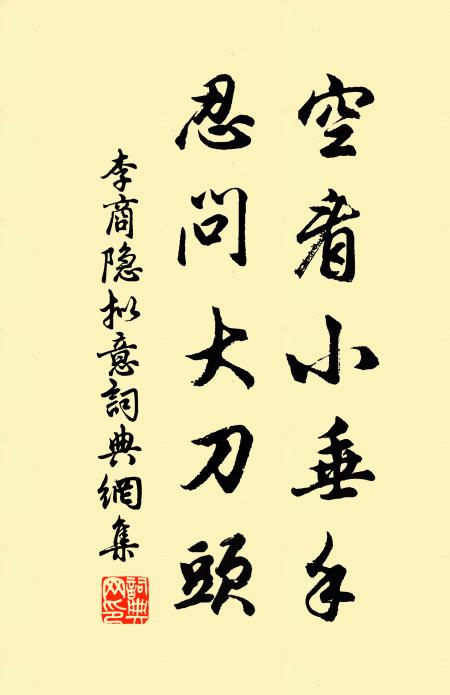 空看小垂手
忍問大刀頭
李商隐拟意詞典網集
詞典網印